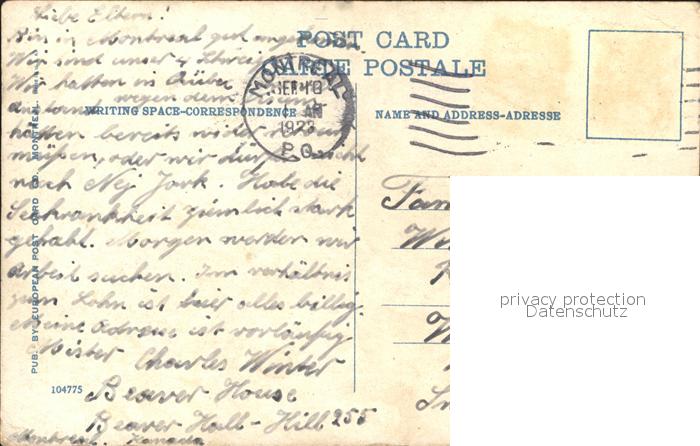 Liebe Eltern!
Bin in Montreal gut
Wir sind unser 4 Schweizer
Wir hatten in
wegen dem
hatten bereits
müßen, oder wir nicht
nach Nej Jork. Habe die
Seekrankheit ziemlich stark
gehabt. Morgen werden wir
Arbeit suchen. Im verhältnis
zum Lohn ist hier alles billig.
Meine Adresse ist vorläufig
Mister Charles Winter
Beaver House
Beaver Hall-Hill 255
Montreal. Kanada
POST CARD
CARTE POSTALE
WRITING SPACE-CORRESPONDENCE
NAME AND ADDRESS-ADRESSE
MONTREAL
P.Q.
PUB. BY EUROPEAN POST CARD CO. MONTREAL
104775
Fam
privacy protection
Datenschutz